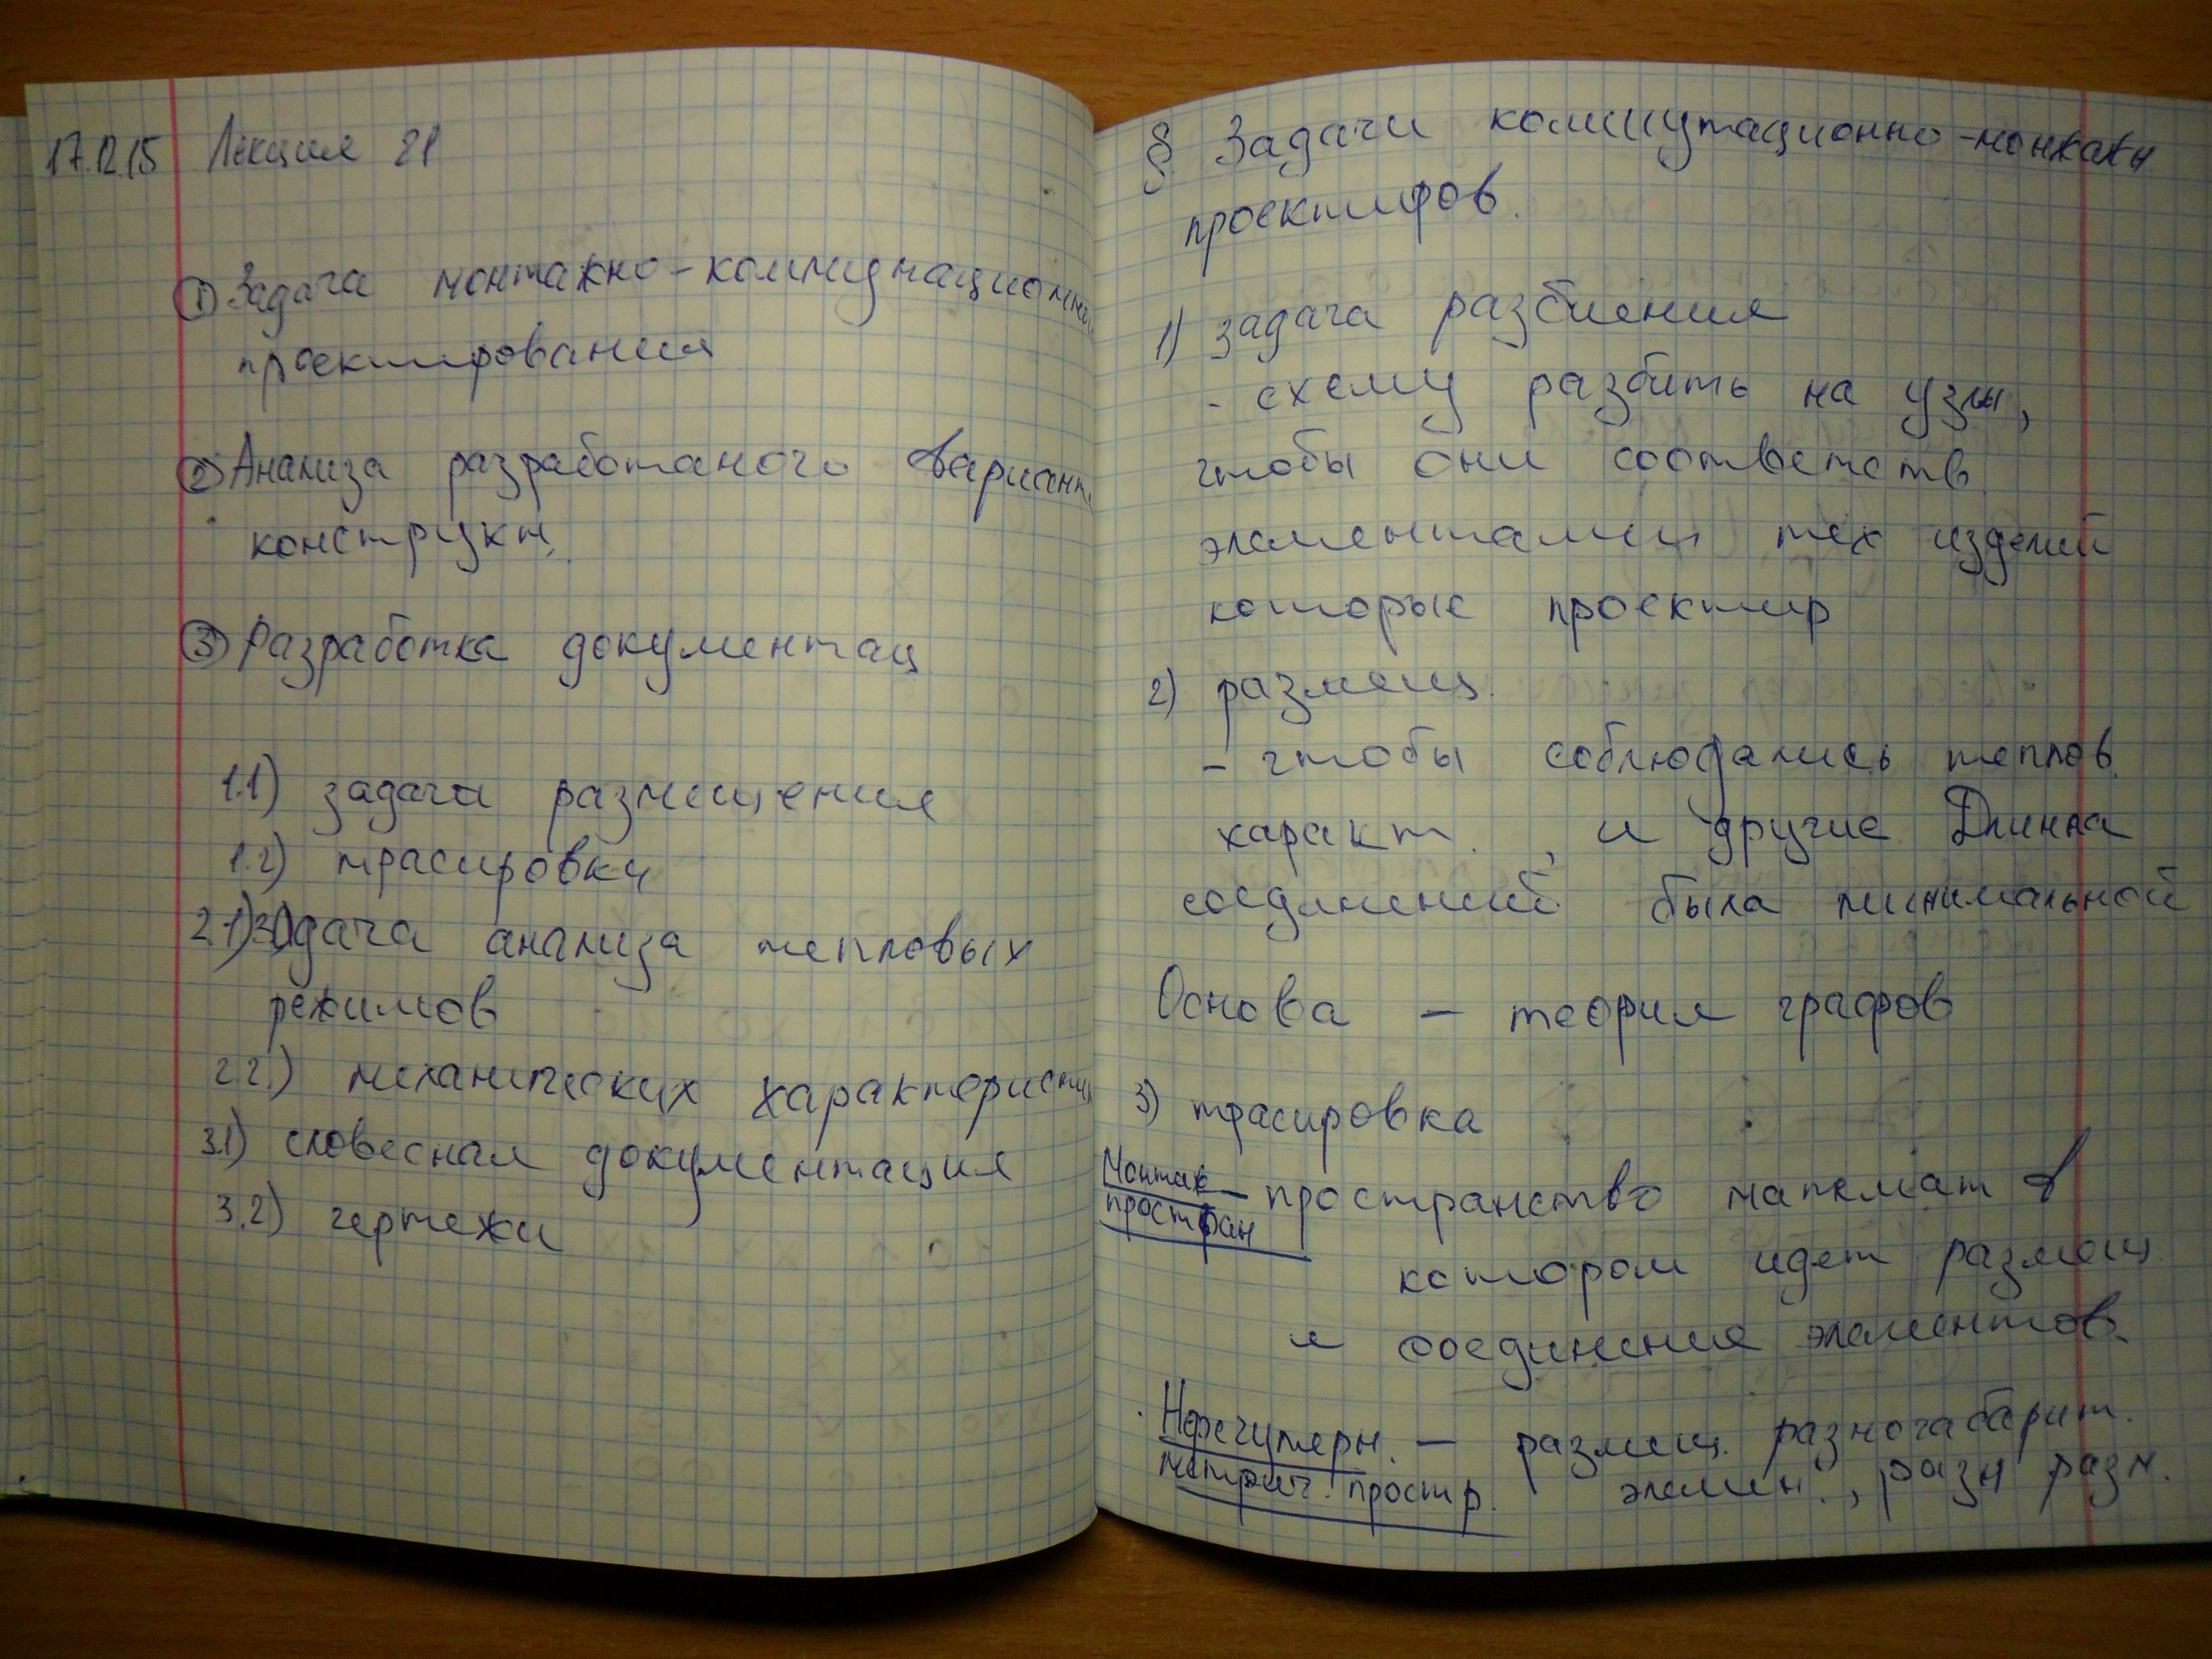 17.12.15 Лекция 21
① Задача монтажно-коммуционно
проектирования
② Анализа разработаного вариант
конструкт.
③ Разработка документац
1.1) задача размещения
1.2) трасировки
2.1) задача анализа тепловых
режимов
2.2.) механических характеристик
3.1) словесная документация
3.2) чертежи
§ Задачи коммутационно-монтажн
проектиров.
1) задача разбиения
- схему разбить на узлы,
чтобы они соответств
элементами тех изделий
которые проектир
2) размещ.
- чтобы соблюдались теплов.
характ. , и другие. Длинна
соединений была минимальной
Основа - теория графов
3) трасировка
Монтаж
простран — пространство математ в
котором идет размещ
и соединения элементов.
Нерегулярн. — размещ. разногабарит.
метрич. простр. элемен., разн разм.